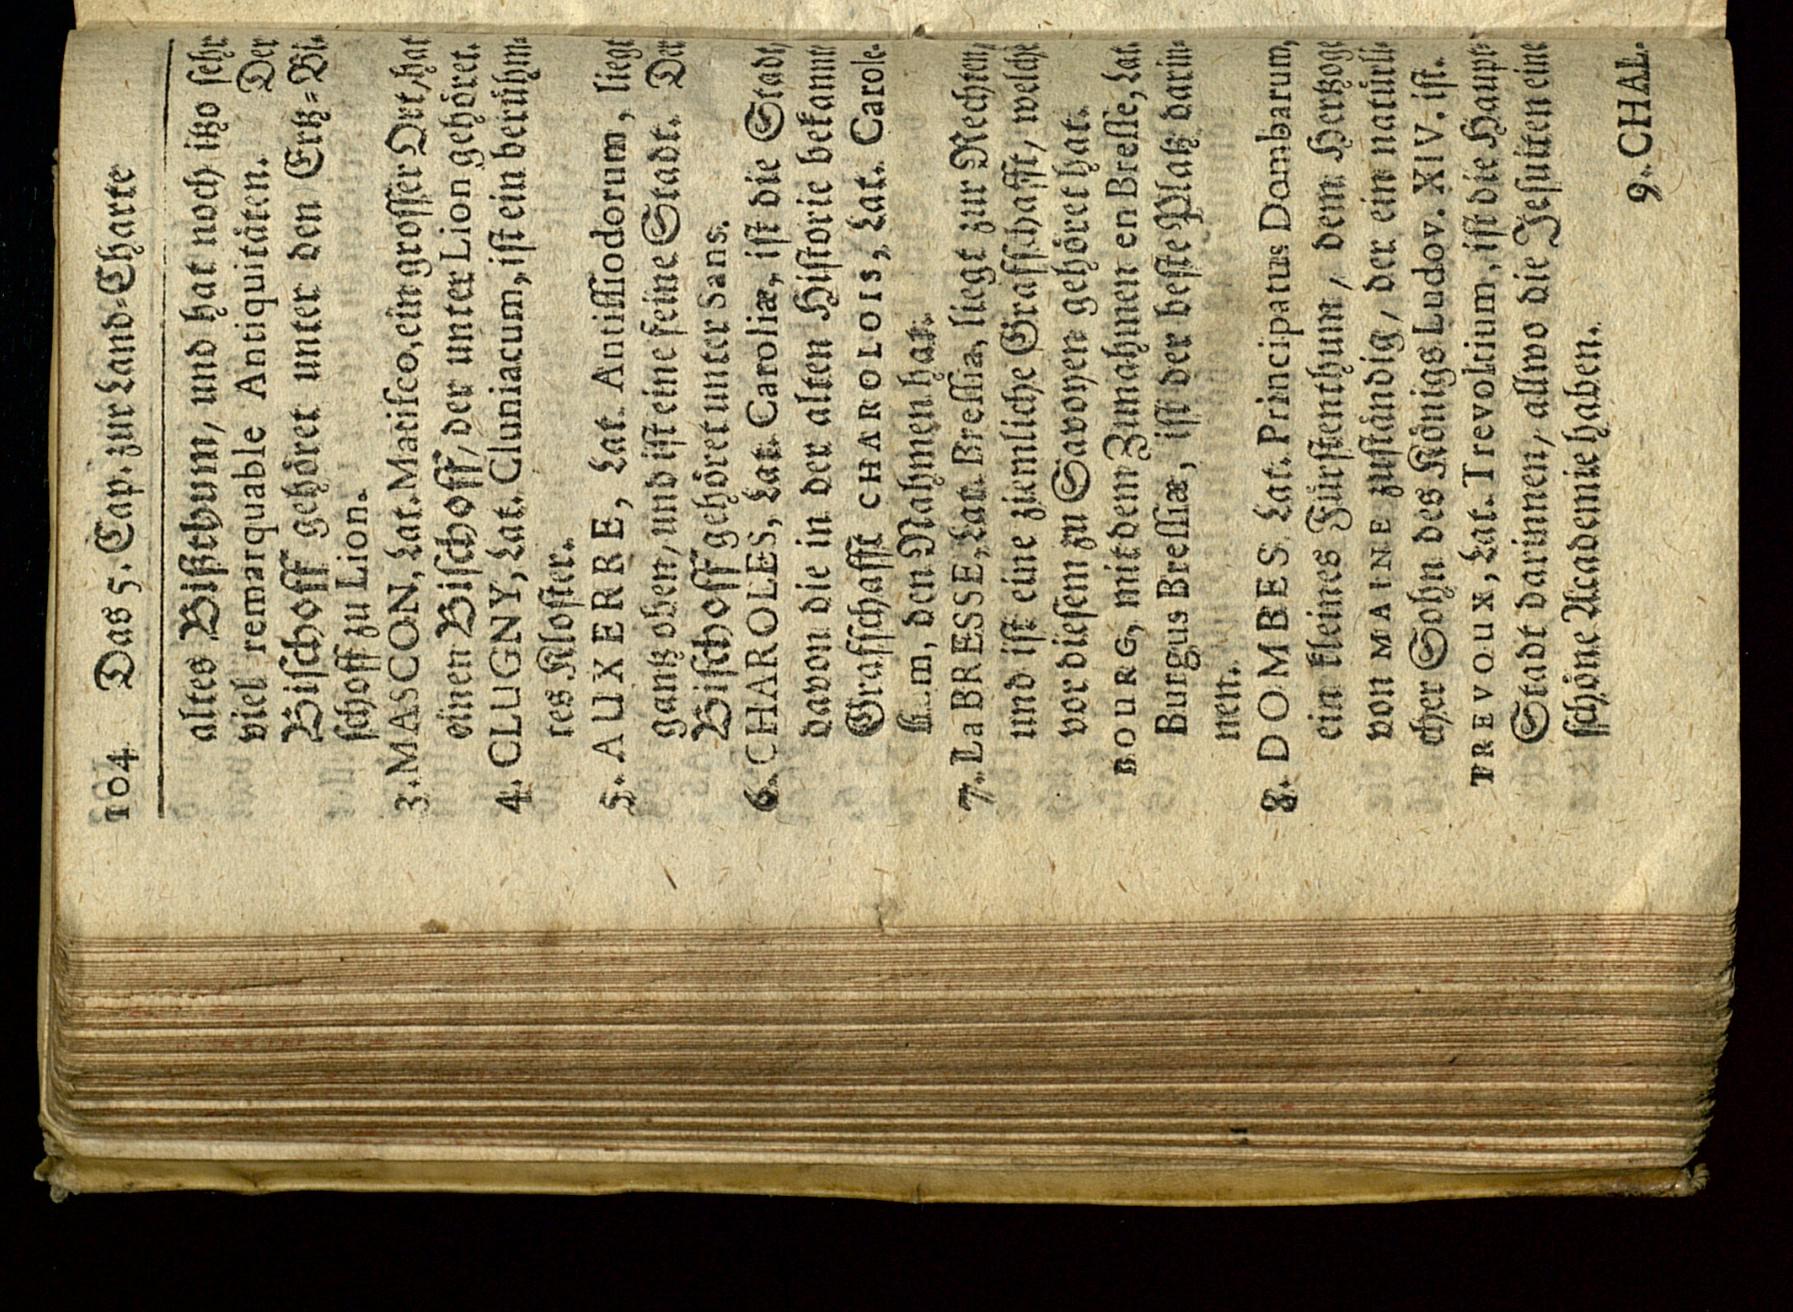 104 Das 5. Cap. zur Land-Charte
altes Bißthum, und hat noch itzo sehr
viel remarquable Antiquitäten. Der
Bischoff gehöret unter den Ertz-Bi-
schoff zu Lion.
3. MASCON, Lat. Matisco, ein grosser Ort, hat
einen Bischoff, der unter Lion gehöret.
4. CLUGNY, Lat. Cluniacum, ist ein berühm-
tes Kloster.
5. AUXERRE, Lat. Antissiodorum, liegt
gantz oben, und ist eine feine Stadt. Der
Bischoff gehöret unter Sans.
6. CHAROLES, Lat. Caroliæ, ist die Stadt,
davon die in der alten Historie bekannte
Grafschafft CHAROLOIS, Lat. Carole-
den Nahmen hat.
7. La BRESSE, Lat. Bressia, liegt zur Rechten,
und ist eine ziemliche Grafschafft, welche
vor diesem zu Savoyen gehöret hat.
BOURG, mit dem Zunahmen en Bresse, Lat.
Burgus Bressiæ, ist der beste Platz darin-
nen.
8. DOMBES Lat. Principatus Dombarum,
ein kleines Fürstenthum, dem Hertzoge
von MAINE zuständig, der ein natürli-
cher Sohn des Königs Ludov. XIV. ist.
TREVOUX, Lat. Trevoltium, ist die Haupt-
Stadt darinnen, allwo die Jesuiten eine
schöne Academie haben.
9. CHAL-